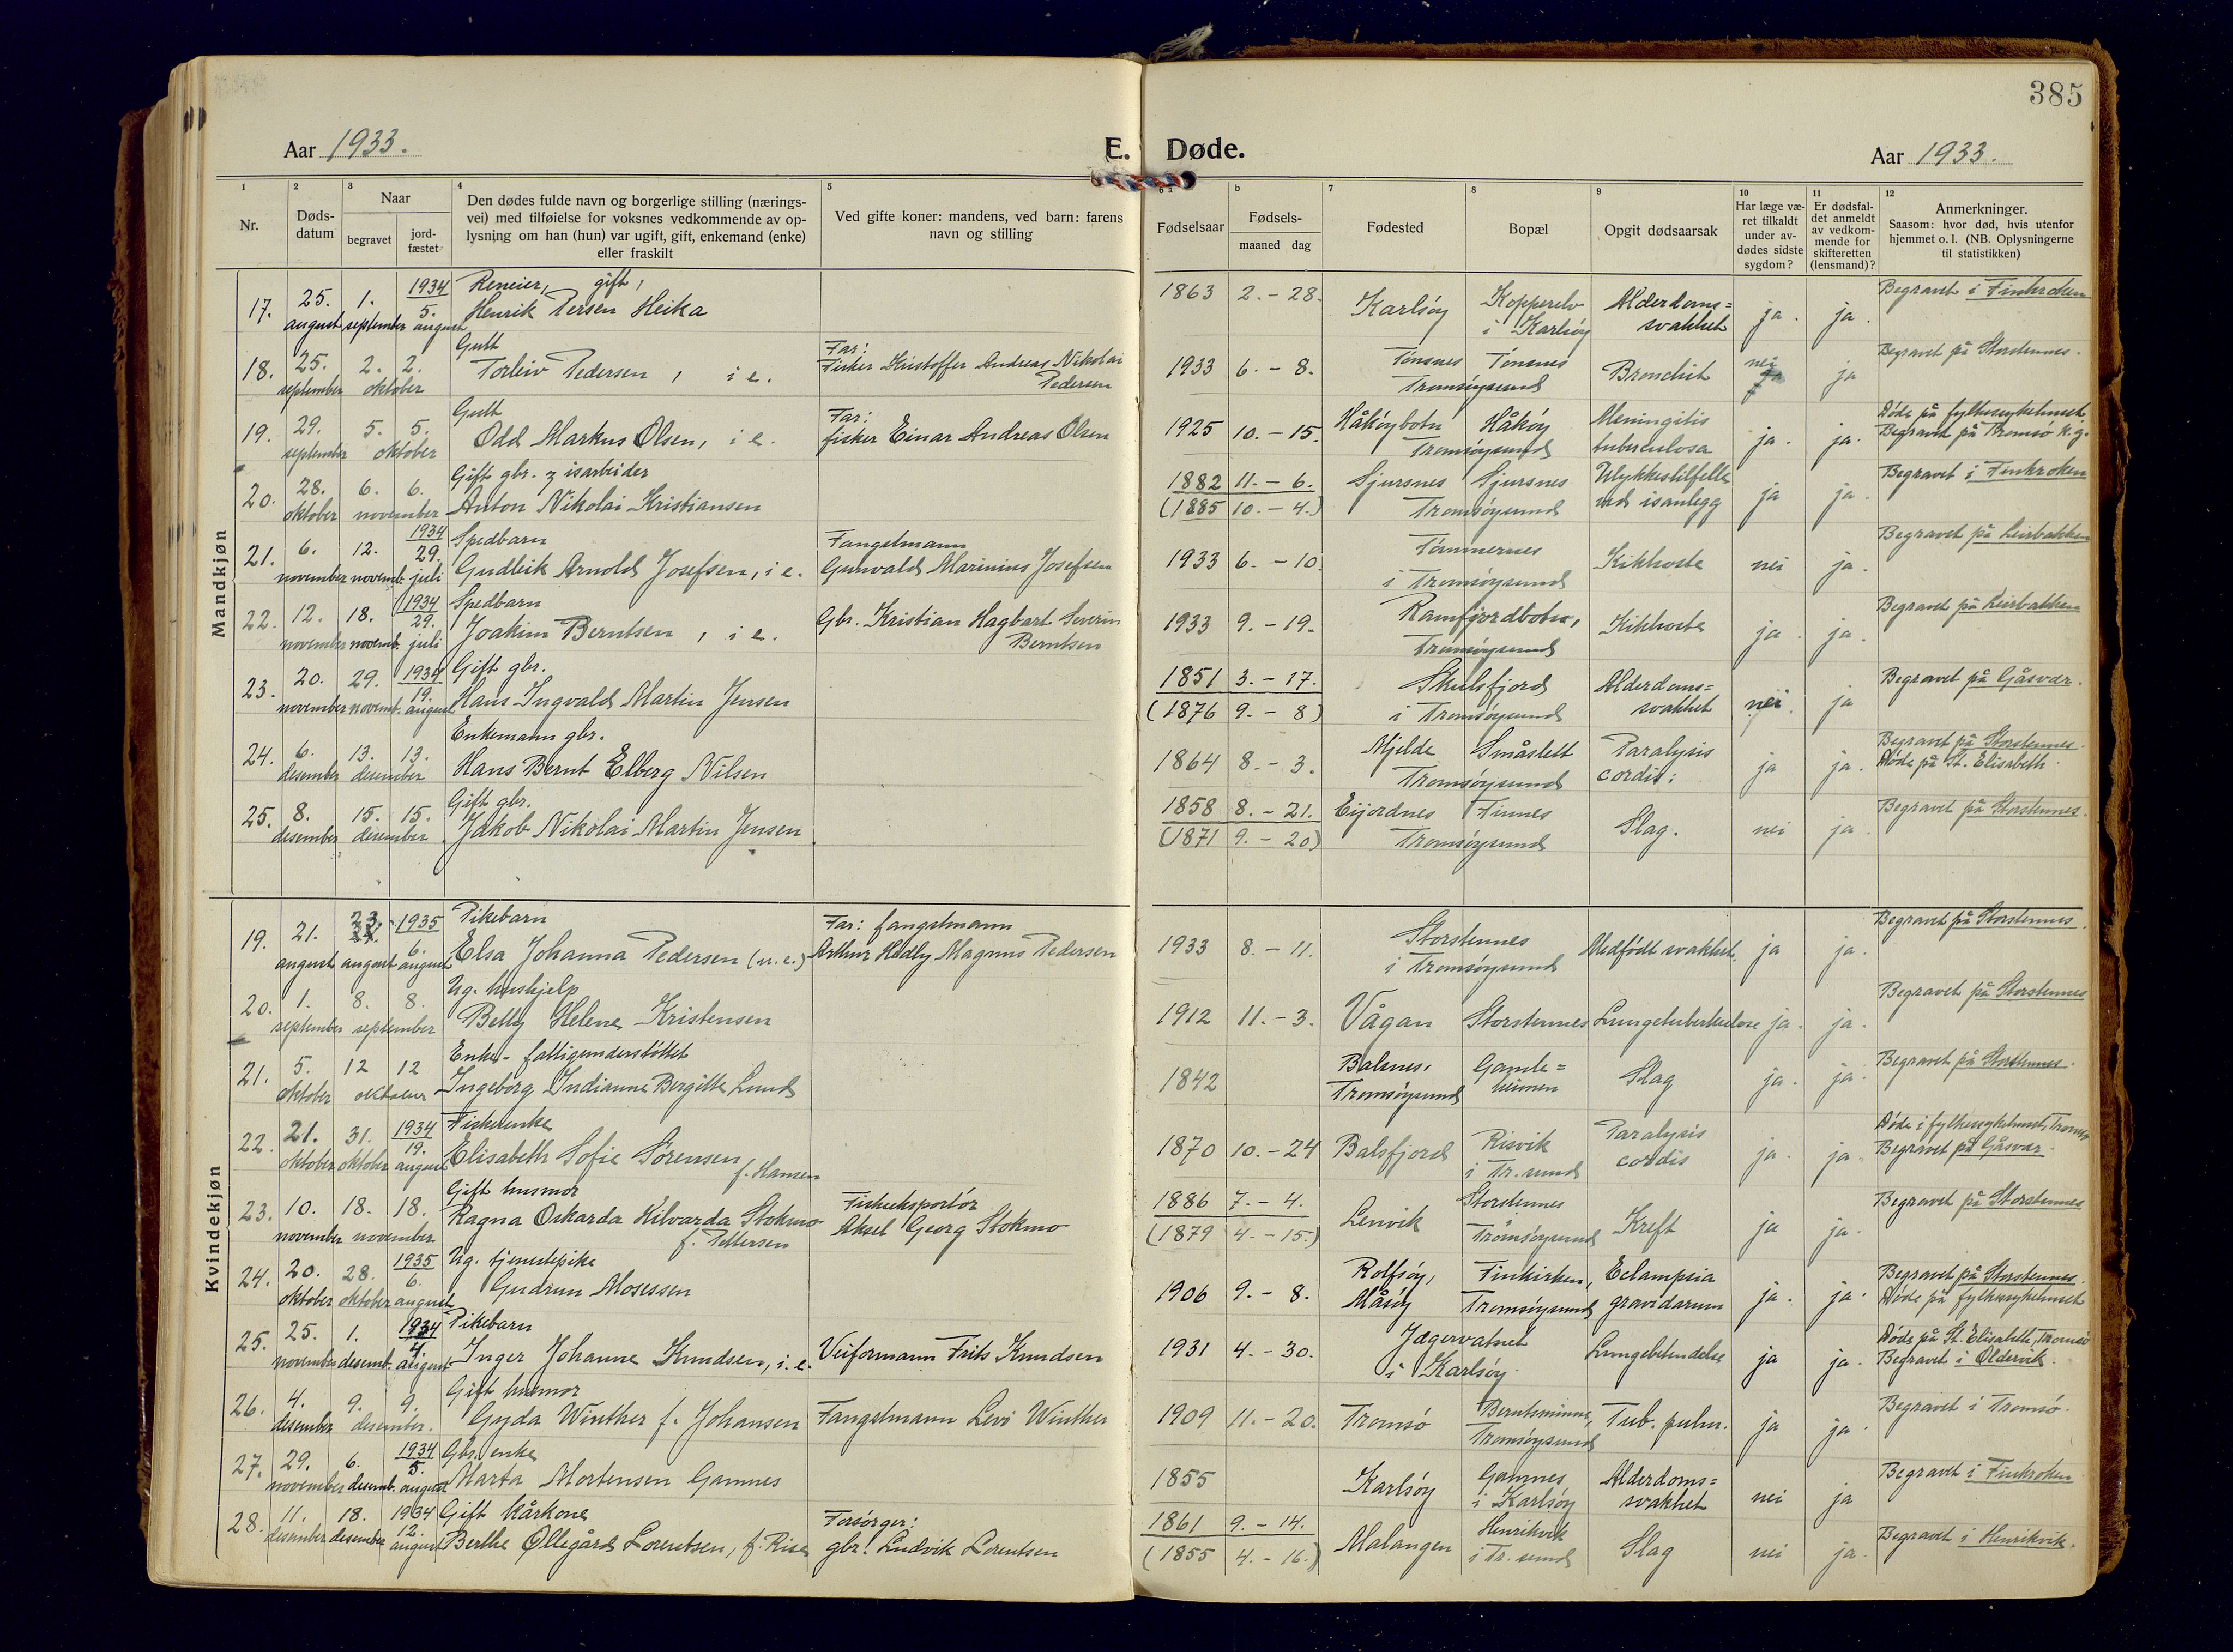 385
Aar 1933.
E. Døde.
Aar 1933.
1 2 3 4 5 6 a b 7 8 9 10 11 12
Nr.
Døds-
datum
Naar
begravet
jord-
fæstet
Den dødes fulde navn og borgerlige stilling (nærings-
vei) med tilføielse for voksnes vedkommende av op-
lysning om han (hun) var ugift, gift, enkemand (enke)
eller fraskilt
Ved gifte koner: mandens, ved barn: farens
navn og stilling
Fødselsaar
Fødsels-
maaned dag
Fødested
Bopæl
Opgit dødsaarsak
Har læge væ-
ret tilkaldt
under av-
dødes sidste
sygdom?
Er dødsfal-
det anmeldt
av vedkom-
mende for
skifteretten
(lensmand)?
Anmerkninger.
Saasom: hvor død, hvis utenfor
hjemmet o. l. (NB. Oplysningerne
til statistikken)
Mandkjøn
1934 Reneier, gift,
17. 25. 1. 5. Henrik Persen Heika 1863 2. - 28. Karlsøy Kopperelv Alderdoms= ja. ja. Begravet i Finkroken
august september august i Karlsøy svakhet
Gutt Far:
18. 25. 2. 2. Torleiv Pedersen, i e. Fisker Kristoffer Andreas Nikolai 1933 6. - 8. Tønsnes Tønsnes Bronchit nei ja Begravet på Storstennes.
september oktober Pedersen Tromsøysund
Gutt Far:
19. 29. 5. 5. Odd Markus Olsen, i e. fisker Einar Andreas Olsen 1925 10. - 15. Håkøybotn Håkøy Meningitis ja. ja. Døde på fylkessykehuset
september oktober Tromsøysund tuberculosa Begravet på Tromsø k.g.
Gift gbr. & isarbeider
20. 28. 6. 6. Anton Nikolai Kristiansen 1882 11. - 6. Sjursnes Sjursnes Ulykkestilfelle ja ja. Begravet i Finkroken
oktober november (1885 10. - 4.) Tromsøysund ved isanlegg
1934 Spedbarn Fangstmann
21. 6. 12. 29. Gudleik Arnold Josefsen, i e. Gunvald Marinius Josefsen 1933 6. - 10. Tømmernes Kikhoste nei ja. Begravet på Leirbakken
november novemb. juli i Tromsøysund
1934 Spedbarn
22. 12. 18. 29. Joakim Berntsen, i e. Gbr. Kristian Hagbart Severin 1933 9. - 19. Ramfjordbotn, Kikhoste ja. ja. Begravet på Leirbakken
november novemb. juli Berntsen Tromsøysund
1934 Gift gbr.
23. 20. 29. 19. Hans Ingvald Martin Jensen 1851 3. - 17. Skulsfjord Alderdoms= nei. ja Begravet på Gåsvær.
november novemb. august (1876 9. - 8) i Tromsøysund svakhet
Enkemann gbr.
24. 6. 13. 13. Hans Bernt Elberg Nilsen 1864 8. - 3. Mjelde Småslett Paralysis ja ja. Begravet på Storstennes.
desember desember Tromsøysund cordis. Døde på St. Elisabeth.
Gift gbr.
25. 8. 15. 15. Jakob Nikolai Martin Jensen 1858 8. - 21. Eijordnes Finnes Slag. nei ja. Begravet på Storstennes.
desember desember (1871 9. - 20) Tromsøysund
Kvindekjøn
1935 Pikebarn Far: fangstmann
19. 21. 23. 6. Elsa Johanna Pedersen (u. e.) Arthur Hedly Magnus Pedersen 1933 8. - 11. Storstennes Medfødt svakhet. ja ja. Begravet på Storstennes.
august august august i Tromsøysund
Ug. hushjelp
20. 1. 8. 8. Betty Helene Kristensen 1912 11. - 3. Vågan Storstennes Lungetuberkulose ja. ja. Begravet på Storstennes
september september
Enke - fattigunderstøttet
21. 5. 12 12 Ingeborg Indianna Bergitte Lund 1842 Balsnes, Gamle= Slag ja. ja. Begravet på Storstennes.
oktober oktober Tromsøysund heimen
1934 Fiskerenke
22. 21. 31. 19. Elisabeth Sofie Sørensen f. Hansen 1870 10. - 24 Balsfjord Risvik Paralysis ja. ja. Døde i fylkessykehuset, Tromsø
oktober oktober august i Tr.sund cordis Begravet på Gåsvær.
Gift husmor Fiskeeksportør
23. 10. 18. 18. Ragna Oskarda Hilvarda Stokmo Aksel Georg Stokmo 1886 7. - 4. Lenvik Storstennes Kreft ja ja. Begravet på Storstennes
november november f. Pettersen (1879 4. - 15.) Tromsøysund
1935 Ug. tjenestepike
24. 20. 28. 6. Gudrun Mosessen 1906 9. - 8. Rolfsøy, Finkirken, Eclampsia ja. ja. Begravet på Storstennes.
oktober oktober august Måsøy Tromsøysund gravidarum Døde på fylkessykehuset
1934 Pikebarn
25. 25. 1. 4. Inger Johanne Knudsen, i. e. Veiformann Frits Knudsen 1931 4. - 30. Jægervatnet Lungebetendelse ja ja. Døde på St. Elisabeth, Tromsø
november desemb. august i Karlsøy. Begravet i Oldervik.
Gift husmor
26. 4. 9. 9. Gyda Winther f. Johansen Fangstmann Levi Winther 1909 11. - 20. Tromsø Berntsminne, Tub. pulm. ja ja. Begravet i Tromsø.
desember desember. Tromsøysund
1934 Gbr. enke
27. 29. 6. 5. Marta Mortensen Gamnes 1855 Karlsøy Gamnes Alderdoms= nei ja Begravet i Finkroken
november desemb. august i Karlsøy svakhet
1934 Gift kårkone Forsørger:
28. 11. 18. 12. Berthe Øllegård Lorentsen, f. Rise gbr. Ludvik Lorentsen 1861 9. - 14. Malangen Henrikvik Slag nei ja. Begravet i Henrikvik.
desember desember august (1855 4. - 16.) i Tr. sund